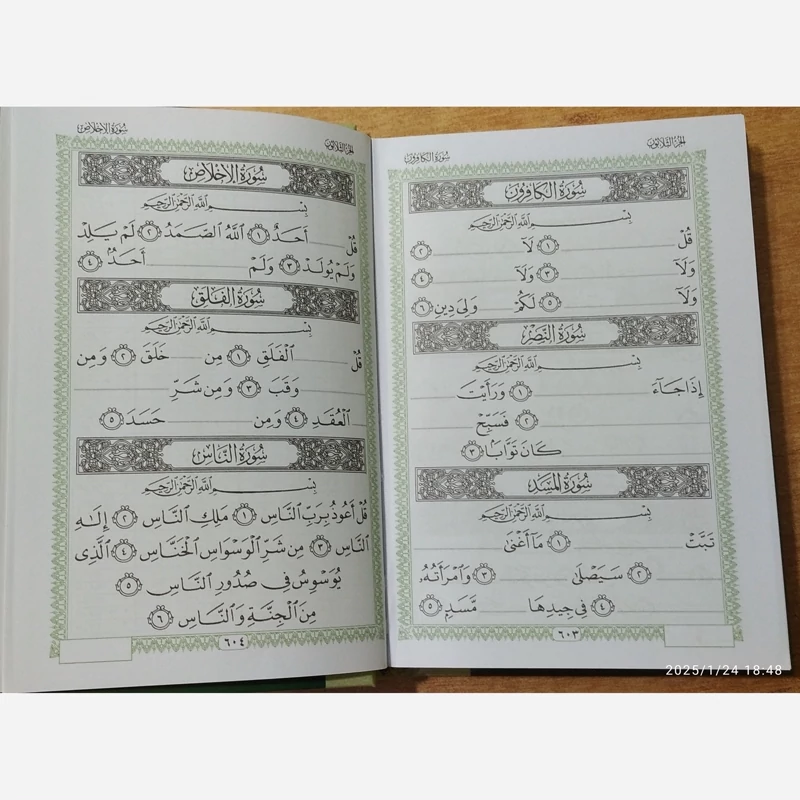 الجزء الثلاثون
سورة الكافرون
سُورَةُ الكَافِرُونَ
بِسْمِ اللَّهِ الرَّحْمَٰنِ الرَّحِيمِ
قُلْ ١ لَآ ٢
وَلَآ ٣ وَلَآ ٤
وَلَآ ٥ لَكُمْ وَلِيَ دِينِ ٦
سُورَةُ النَّصْرِ
بِسْمِ اللَّهِ الرَّحْمَٰنِ الرَّحِيمِ
إِذَا جَآءَ ١ وَرَأَيْتَ
٢ فَسَبِّحْ
كَانَ تَوَّابَۢا ٣
سُورَةُ المَسَدِ
بِسْمِ اللَّهِ الرَّحْمَٰنِ الرَّحِيمِ
تَبَّتْ ١ مَآ أَغْنَىٰ
٢ سَيَصْلَىٰ ٣ وَٱمْرَأَتُهُۥ
٤ فِي جِيدِهَا مَّسَدِۭ ٥
٦٠٣
الجزء الثلاثون
سورة الإخلاص
سُورَةُ الإِخْلَاصِ
بِسْمِ اللَّهِ الرَّحْمَٰنِ الرَّحِيمِ
قُلْ أَحَدٌ ١ ٱللَّهُ ٱلصَّمَدُ ٢ لَمْ يَلِدْ
وَلَمْ يُولَدْ ٣ وَلَمْ أَحَدُۢ ٤
سُورَةُ الفَلَقِ
بِسْمِ اللَّهِ الرَّحْمَٰنِ الرَّحِيمِ
قُلْ ٱلْفَلَقِ ١ مِن خَلَقَ ٢ وَمِن
وَقَبَ ٣ وَمِن شَرِّ
ٱلْعُقَدِ ٤ وَمِن حَسَدَ ٥
سُورَةُ النَّاسِ
بِسْمِ اللَّهِ الرَّحْمَٰنِ الرَّحِيمِ
قُلْ أَعُوذُ بِرَبِّ ٱلنَّاسِ ١ مَلِكِ ٱلنَّاسِ ٢ إِلَٰهِ
ٱلنَّاسِ ٣ مِن شَرِّ ٱلْوَسْوَاسِ ٱلْخَنَّاسِ ٤ ٱلَّذِي
يُوَسْوِسُ فِي صُدُورِ ٱلنَّاسِ ٥
مِنَ ٱلْجِنَّةِ وَٱلنَّاسِ ٦
٦٠٤
2025/1/24 18:48